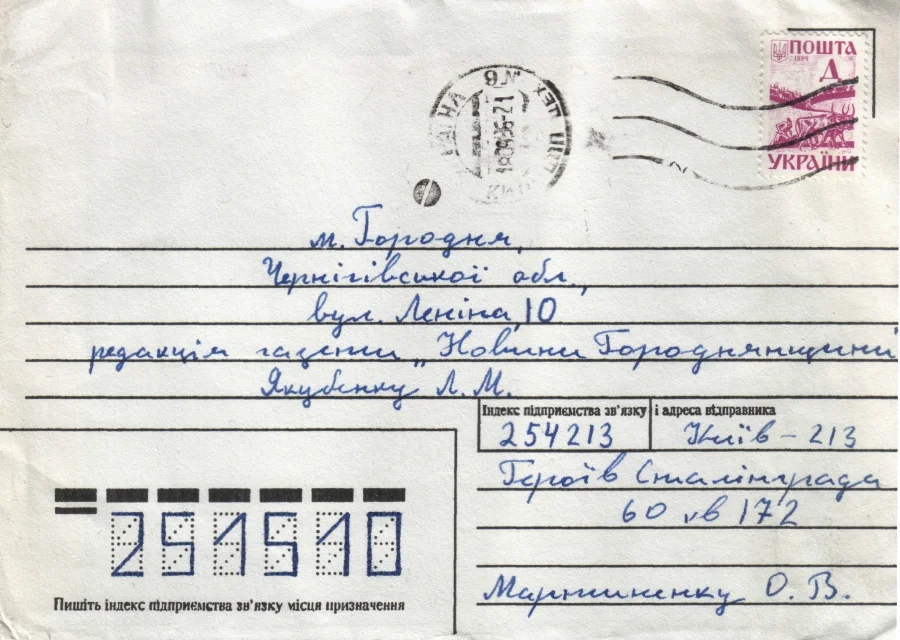 ПОШТА
1994
Д
УКРАЇНИ
18096-21
м. Городня,
Чернігівської обл.,
вул. Леніна, 10
редакція газети „Новини Городнянщини"
Якубенку Л. М.
Індекс підприємства зв'язку і адреса відправника
254213 Київ – 213
Героїв Сталінграда
60 кв 172
251510
Мартиненку О. В.
Пишіть індекс підприємства зв'язку місця призначення